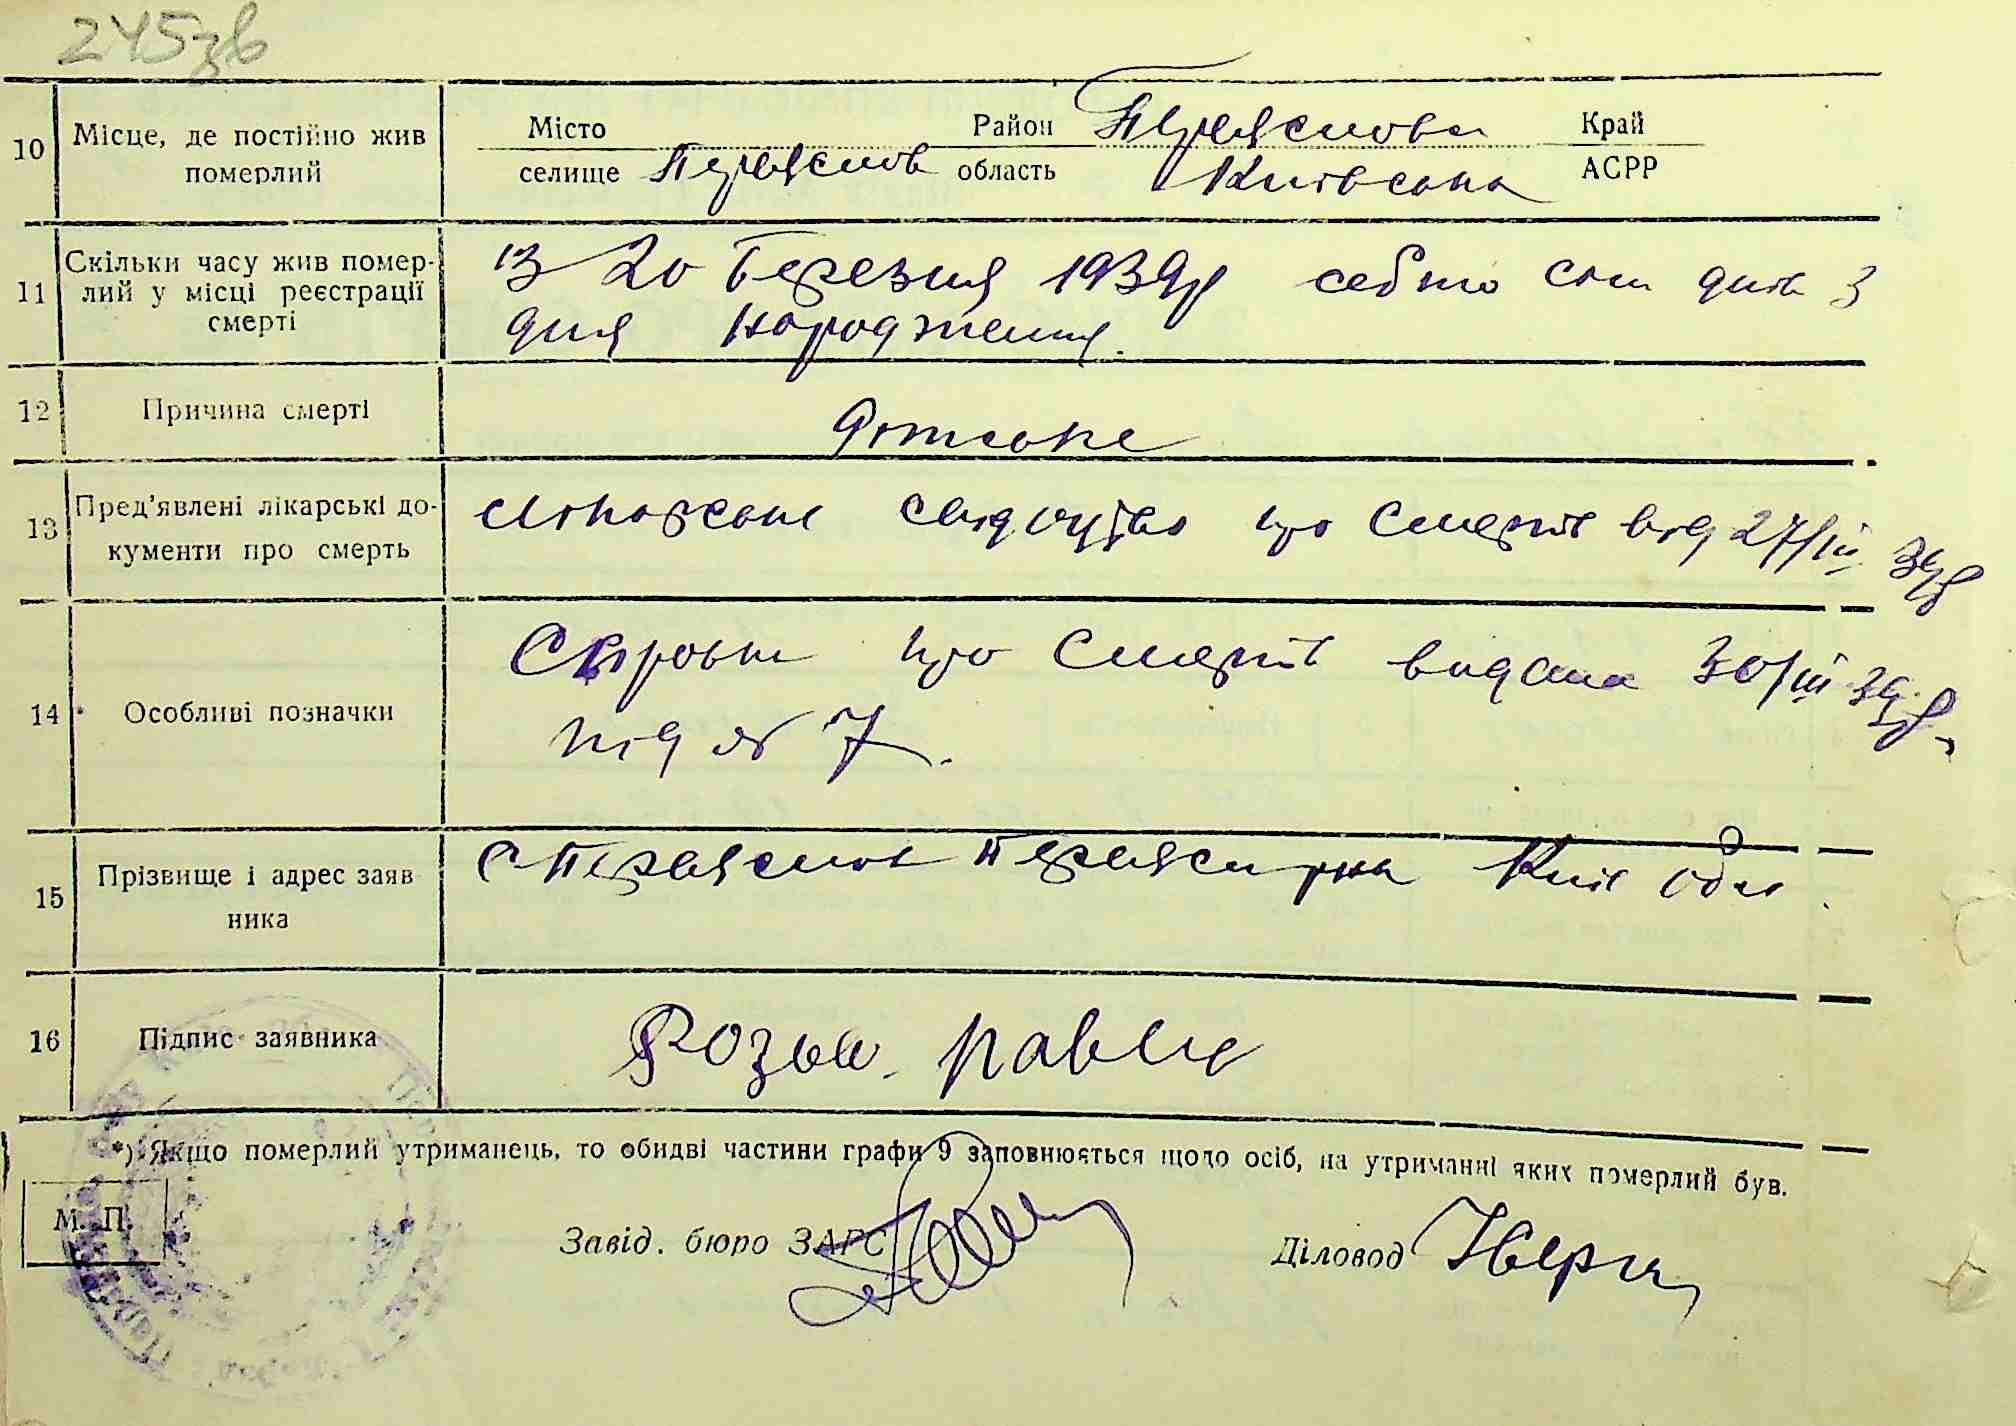 245зв
10 Місце, де постійно жив померлий
Місто Район Переяслова Край
селище Переяслов область Київська АСРР
11 Скільки часу жив помер-
лий у місці реєстрації
смерті
із 20 березня 1939 р себто сім днів з
дня народження.
12 Причина смерті
дітське
13 Пред’явлені лікарські до-
кументи про смерть
лікарське свідоцтво про смерть від 27/III 39 р
14 Особливі позначки
про смерть видана 30/III 39 р.
під № 7.
15 Прізвище і адрес заяв
ника
с Переяслов Київ обл.
16 Підпис заявника
Розва. Павли
*) Якщо померлий утриманець, то обидві частини графи 9 заповнюється щодо осіб, на утриманні яких померлий був.
М. П.
Завід. бюро ЗАРС
Діловод